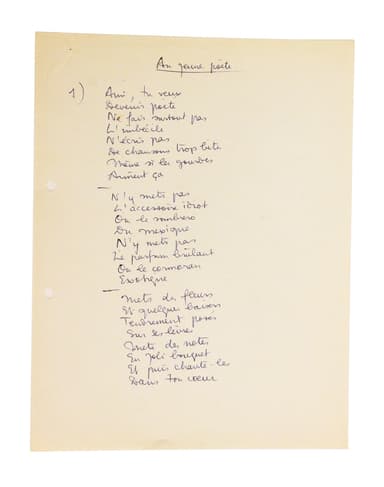 Au jeune poète
1) Ami, tu veux
Devenir poète
Ne fais surtout pas
L'imbécile
N'écris pas
De chansons trop bête
Même si les gourdes
Aiment ça
N'y mets pas
L'accessoire idiot
Ou le sombrero
Du mexique
N'y mets pas
Le parfum brûlant
Ou le cormoran
Exotique
Mets des fleurs
Et quelques baisers
Tendrement posés
Sur ses lèvres
Mets des notes
En joli bouquet
Et puis chante-les
Dans ton coeur